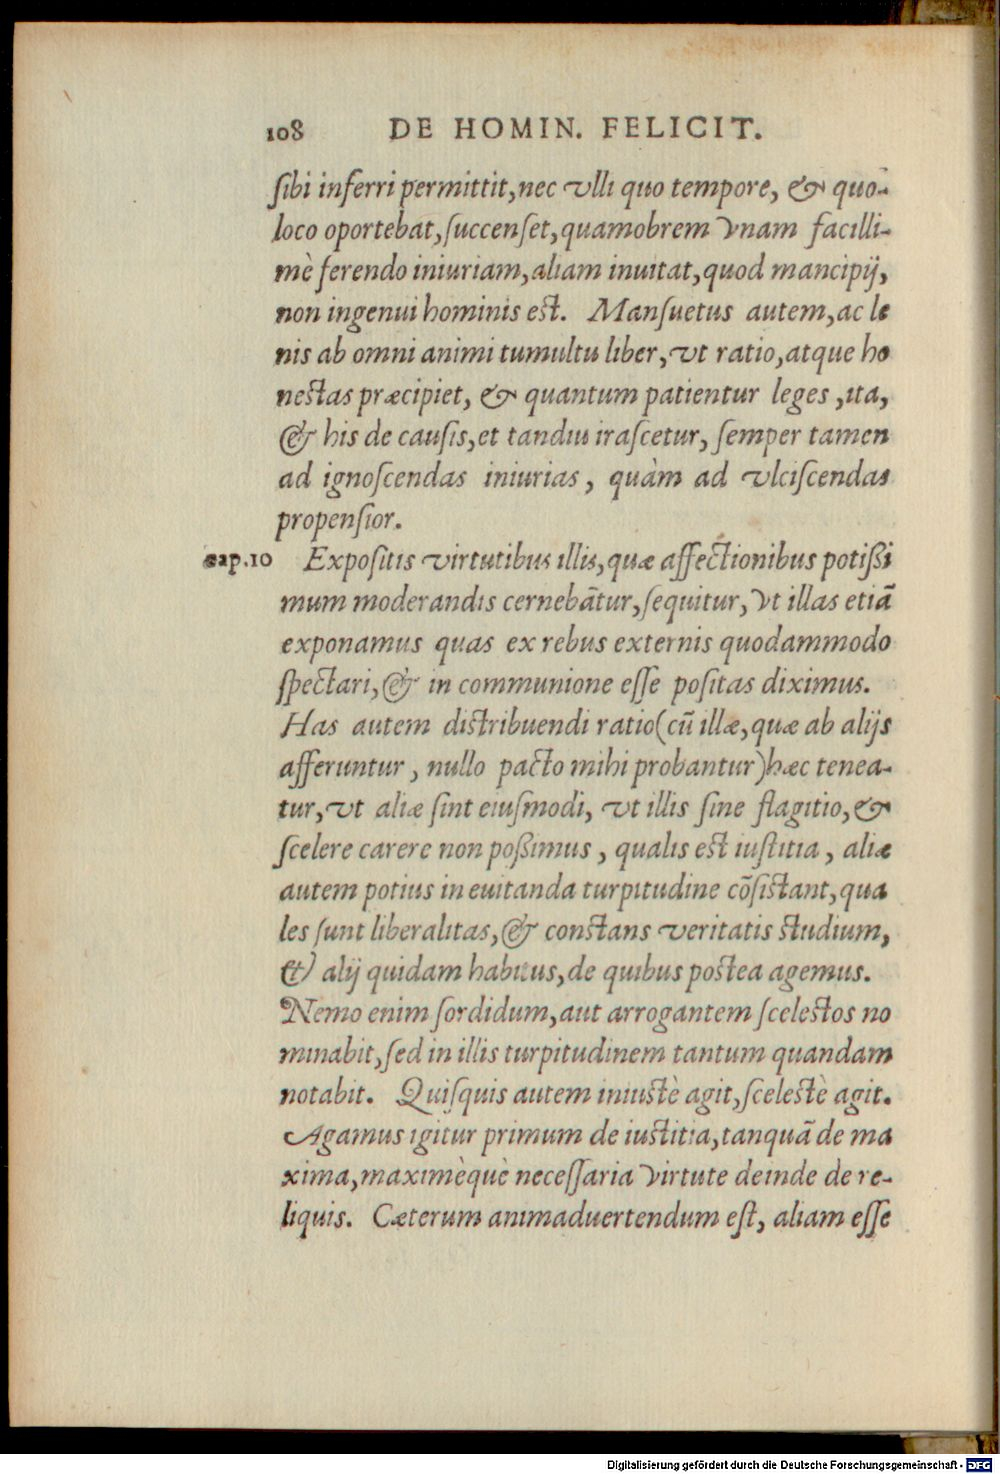 108 DE HOMIN. FELICIT.
ſibi inferri permittit, nec vlli quo tempore, & quo-
loco oportebat, ſuccenſet, quamobrem vnam facilli-
mè ferendo iniuriam, aliam inuitat, quod mancipij,
non ingenui hominis est. Manſuetus autem, ac le
nis ab omni animi tumultu liber, vt ratio, atque ho
nestas præcipiet, & quantum patientur leges, ita,
& his de cauſis, et tandiu iraſcetur, ſemper tamen
ad ignoſcendas iniurias, quàm ad vlciſcendas
propenſior.
cap.10 Expoſitis virtutibus illis, quæ affectionibus potißi
mum moderandis cernebãtur, ſequitur, vt illas etiã
exponamus quas ex rebus externis quodammodo
ſpectari, & in communione eſſe poſitas diximus.
Has autem distribuendi ratio (cũ illæ, quæ ab alijs
afferuntur, nullo pacto mihi probantur) hæc tenea-
tur, vt aliæ ſint eiuſmodi, vt illis ſine flagitio, &
ſcelere carere non poßimus, qualis est iuſtitia, aliæ
autem potius in euitanda turpitudine cõſistant, qua
les ſunt liberalitas, & constans veritatis studium,
& alij quidam habitus, de quibus postea agemus.
Nemo enim ſordidum, aut arrogantem ſcelestos no
minabit, ſed in illis turpitudinem tantum quandam
notabit. Quiſquis autem iniustè agit, ſcelestè agit.
Agamus igitur primum de iustitia, tanquã de ma
xima, maximèquè neceſſaria virtute deinde de re-
liquis. Cæterum animaduertendum eſt, aliam eſſe
Digitalisierung gefördert durch die Deutsche Forschungsgemeinschaft - DFG